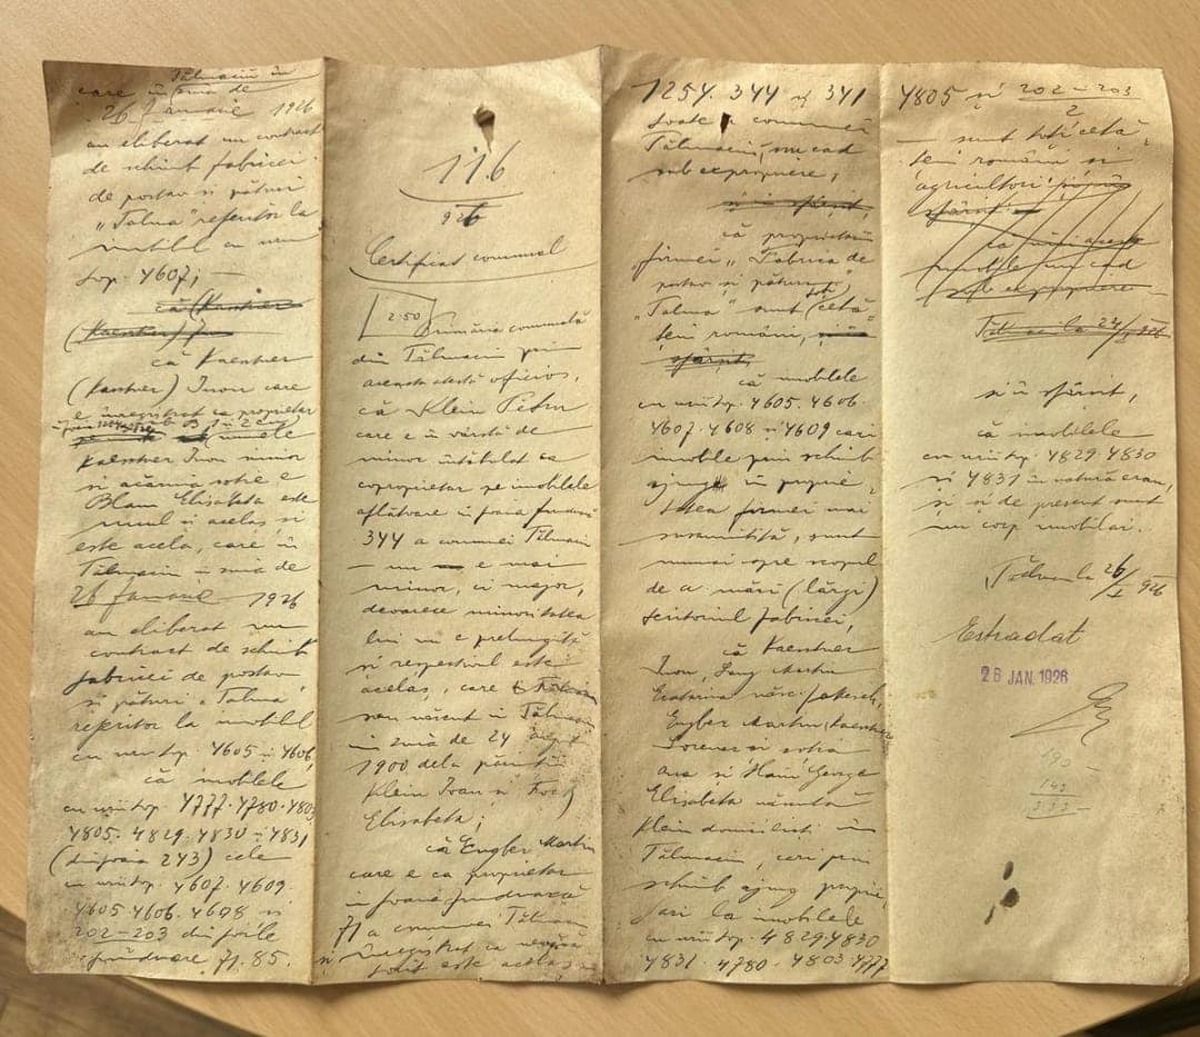 Tălmaciu în
care în ziua de
26 Ianuarie 1926
au eliberat un contract
de schimb fabricei
de postav și pături
„Talma" referitor la
imobilul cu nru
top. 4607; —
că (Kastner
(Kaestner)
că Kaestner
(Kastner) Ioan care
e înregistrat ca proprietar
sub B 1 și 2 cu
numele
Kaestner Ioan minor
și acărui soție e
Blau Elisabeta este
unul și acelaș și
este acela, care în
Tălmaciu în ziua de
26 Ianuarie 1926
au eliberat un
contract de schimb
fabricei de postav
și pături „Talma"
referitor la imobilul
cu nru top. 4605 și 4606,
că imobilele
cu nrii top. 4777. 4780. 4803
4805. 4829. 4830 și 4831
(din foaia 243) cele
cu nrii top. 4607. 4609.
4605 4606. 4608 și
202-203 din foile
funduare 71. 85.
116
926
Certificat comunal
2.50
Primăria comunală
din Tălmaciu prin
aceasta atestă oficios,
că Klein Petru
care e în vârstă de
minor întăbulat ca
coproprietar pe imobilele
aflătoare în foaia funduară
344 a comunei Tălmaciu
— nu e mai
minor, ci major,
deoarece minoritatea
lui nu e prelungită
și respectivul este
acelaș, care
s'au născut în Tălmaciu
în ziua de 24 August
1900 dela părinții
Klein Ioan și
Elisabeta;
că Engber Martin
care e ca proprietar
în foaia funduară
71 a comunei Tălmaciu
înregistrat ca
este acelaș
1254. 344 și 341
toate a comunei
Tălmaciu, nu cad
sub expropriere,
și în sfârșit,
că proprietarii
firmei „Fabrica de
postav și pături
„Talma" sunt toți cetă-
țeni români,
sfârșit,
că imobilele
cu nrii top. 4605. 4606.
4607. 4608 și 4609 cari
imobile prin schimb
ajung în proprie-
tatea firmei mai
susamintită, sunt
numai spre scopul
de a mări (lărgi)
teritorul fabricei,
că Kaestner
Ioan, Martin
Ecaterina născ.
Engber Martin, Kaestner
Lorenz și soția
Ana și Hani George
Elisabeta născută
Klein domiciliați în
Tălmaciu, cari prin
schimb ajung proprie-
tari la imobilele
cu nrii top. 4829 4830
4831. 4780. 4803 4777
4805 și 202-203
2
— sunt toți cetă-
țeni români și
agricultori
sfârșit
că nici aceste
imobile nu cad
sub expropriere —
Tălmaciu la 24/I 926
și în sfârșit,
că imobilele
cu nrii top. 4829 4830
și 4831 în natură erau,
și și de prezent sunt
un corp imobilar.
Tălmaciu la 26/I 926
Estradat
26 JAN. 1926
190
143
333